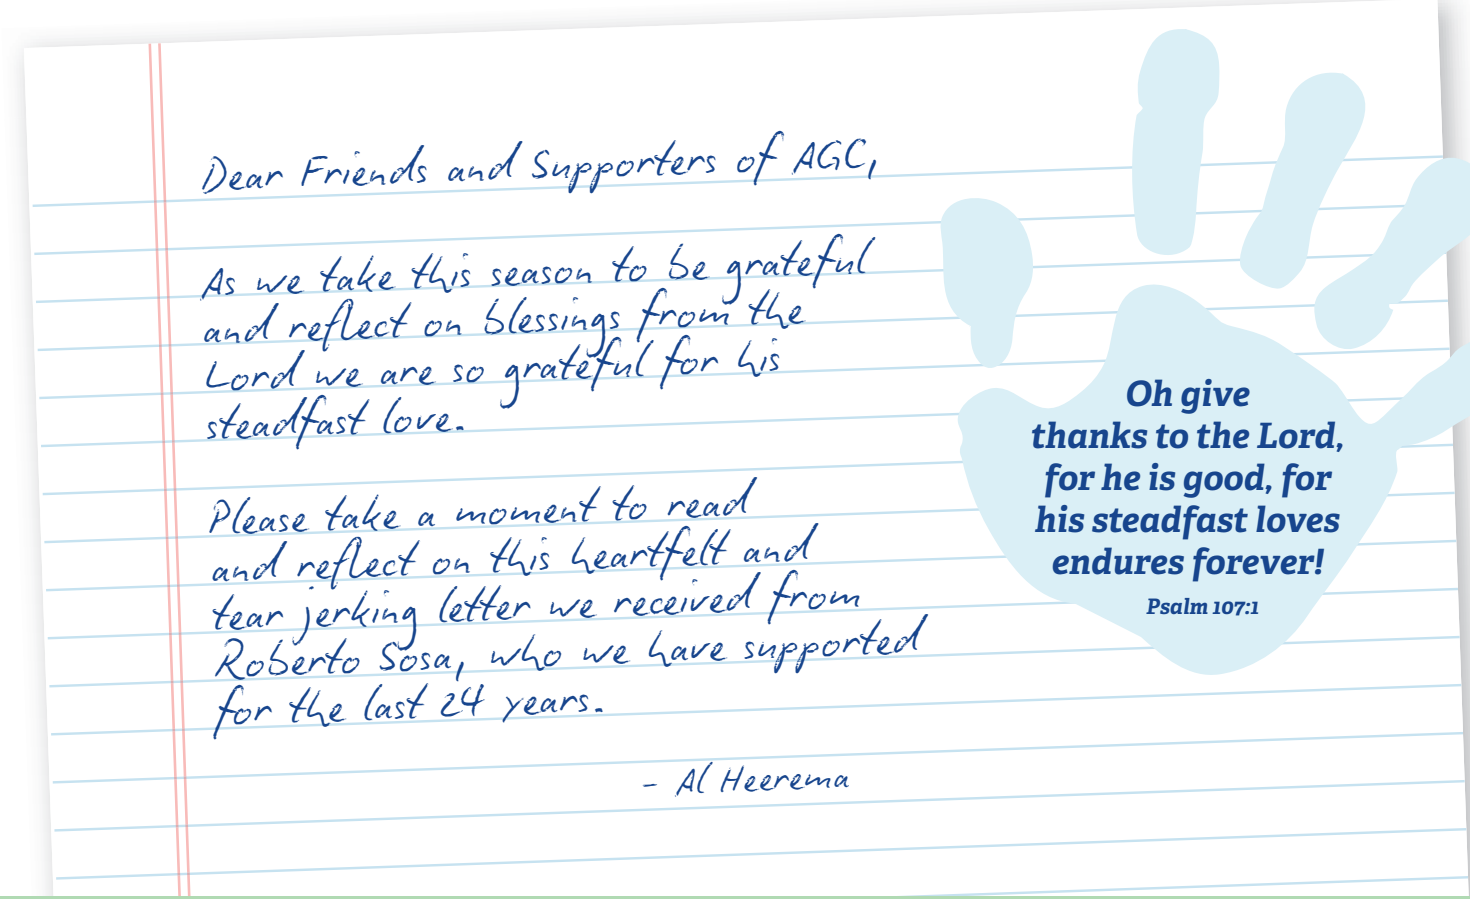 Dear Friends and Supporters of AGC,
As we take this season to be grateful
and reflect on blessings from the
Lord we are so grateful for his
steadfast love.
Please take a moment to read
and reflect on this heartfelt and
tear jerking letter we received from
Roberto Sosa, who we have supported
for the last 24 years.
- Al Heerema
Oh give
thanks to the Lord,
for he is good, for
his steadfast loves
endures forever!
Psalm 107:1